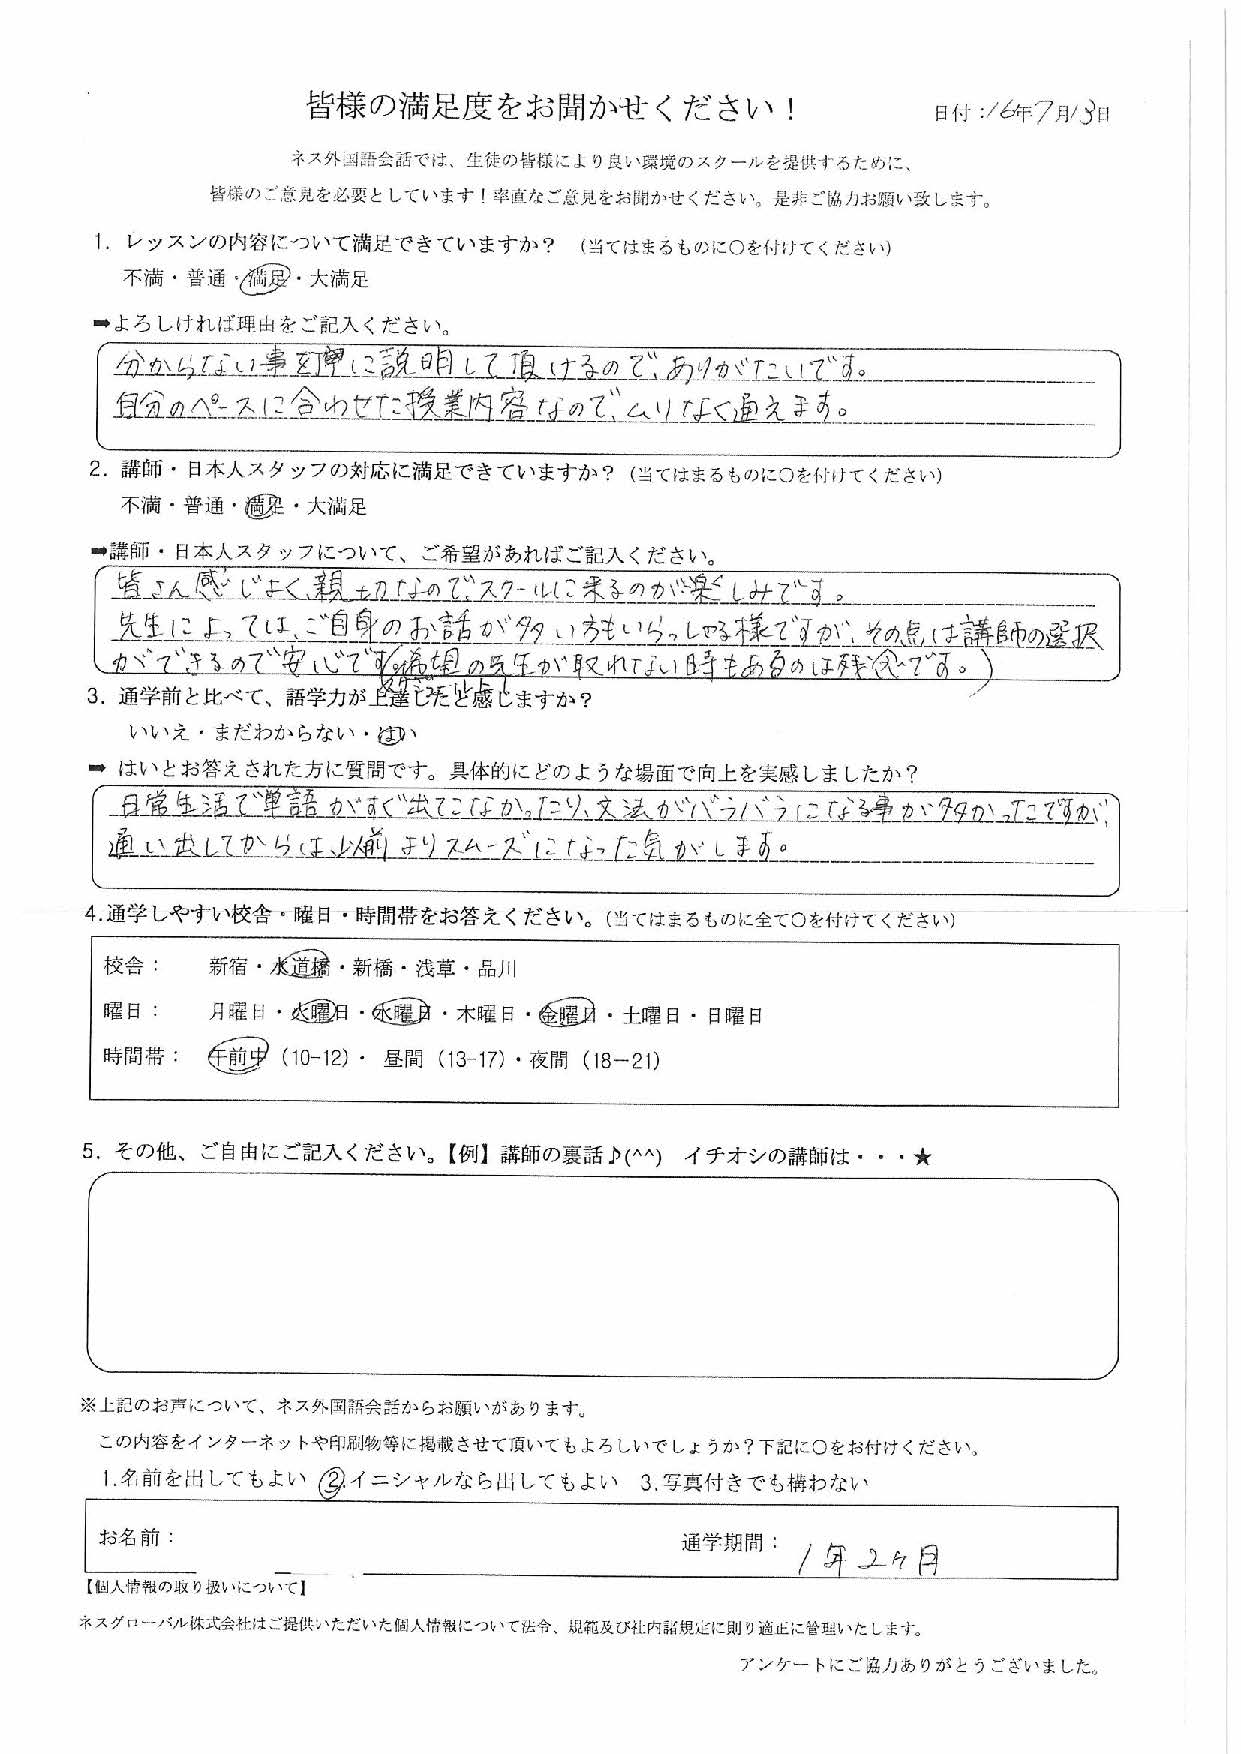 皆様の満足度をお聞かせください！
日付：16年7月13日
ネス外国語会話では、生徒の皆様により良い環境のスクールを提供するために、
皆様のご意見を必要としています！率直なご意見をお聞かせください。是非ご協力お願い致します。
1. レッスンの内容について満足できていますか？ （当てはまるものに○を付けてください）
不満・普通・満足・大満足
➡よろしければ理由をご記入ください。
分からない事を丁寧に説明して頂けるので、ありがたいです。
自分のペースに合わせた授業内容なので、ムリなく通えます。
2. 講師・日本人スタッフの対応に満足できていますか？（当てはまるものに○を付けてください）
不満・普通・満足・大満足
➡講師・日本人スタッフについて、ご希望があればご記入ください。
皆さん感じよく、親切なので、スクールに来るのが楽しみです。
先生によっては、ご自身のお話が多い方もいらっしゃる様ですが、その点は講師の選択
ができるので安心です。(希望の先生が取れない時もあるのは残念です。)
3. 通学前と比べて、語学力が上達したと感じますか？
いいえ・まだわからない・はい
➡ はいとお答えされた方に質問です。具体的にどのような場面で向上を実感しましたか？
日常生活で単語がすぐ出てこなかったり、文法がバラバラになる事が多かったですが、
通い出してからは以前よりスムーズになった気がします。
4.通学しやすい校舎・曜日・時間帯をお答えください。（当てはまるものに全て○を付けてください）
校舎： 新宿・水道橋・新橋・浅草・品川
曜日： 月曜日・火曜日・水曜日・木曜日・金曜日・土曜日・日曜日
時間帯： 午前中（10-12）・ 昼間（13-17）・夜間（18－21）
5. その他、ご自由にご記入ください。【例】講師の裏話♪(^^) イチオシの講師は・・・★
※上記のお声について、ネス外国語会話からお願いがあります。
この内容をインターネットや印刷物等に掲載させて頂いてもよろしいでしょうか？下記に○をお付けください。
1.名前を出してもよい 2.イニシャルなら出してもよい 3.写真付きでも構わない
お名前： 通学期間： 1年2ヶ月
【個人情報の取り扱いについて】
ネスグローバル株式会社はご提供いただいた個人情報について法令、規範及び社内諸規定に則り適正に管理いたします。
アンケートにご協力ありがとうございました。